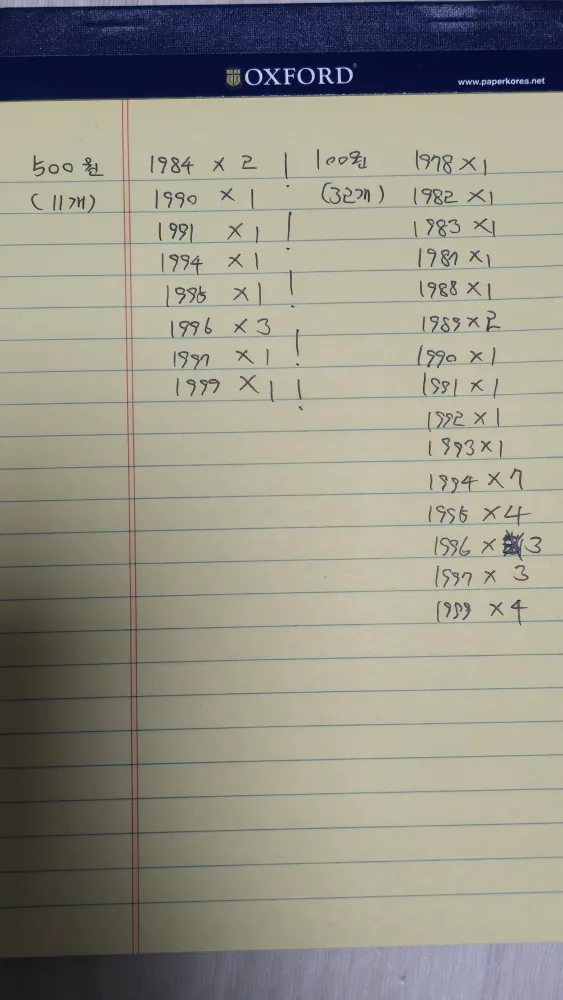 OXFORD
www.paperkorea.net
500원 1984 × 2 | 100원 1978 ×1
(11개) 1990 × 1 (32개) 1982 ×1
1991 × 1 | 1983 ×1
1994 × 1 1987 ×1
1995 × 1 | 1988 × 1
1996 × 3 1989 × 2
1997 × 1 | 1990 × 1
1999 × 1 | 1991 × 1
1992 × 1
1993 × 1
1994 × 7
1995 × 4
1996 × 3
1997 × 3
1999 × 4